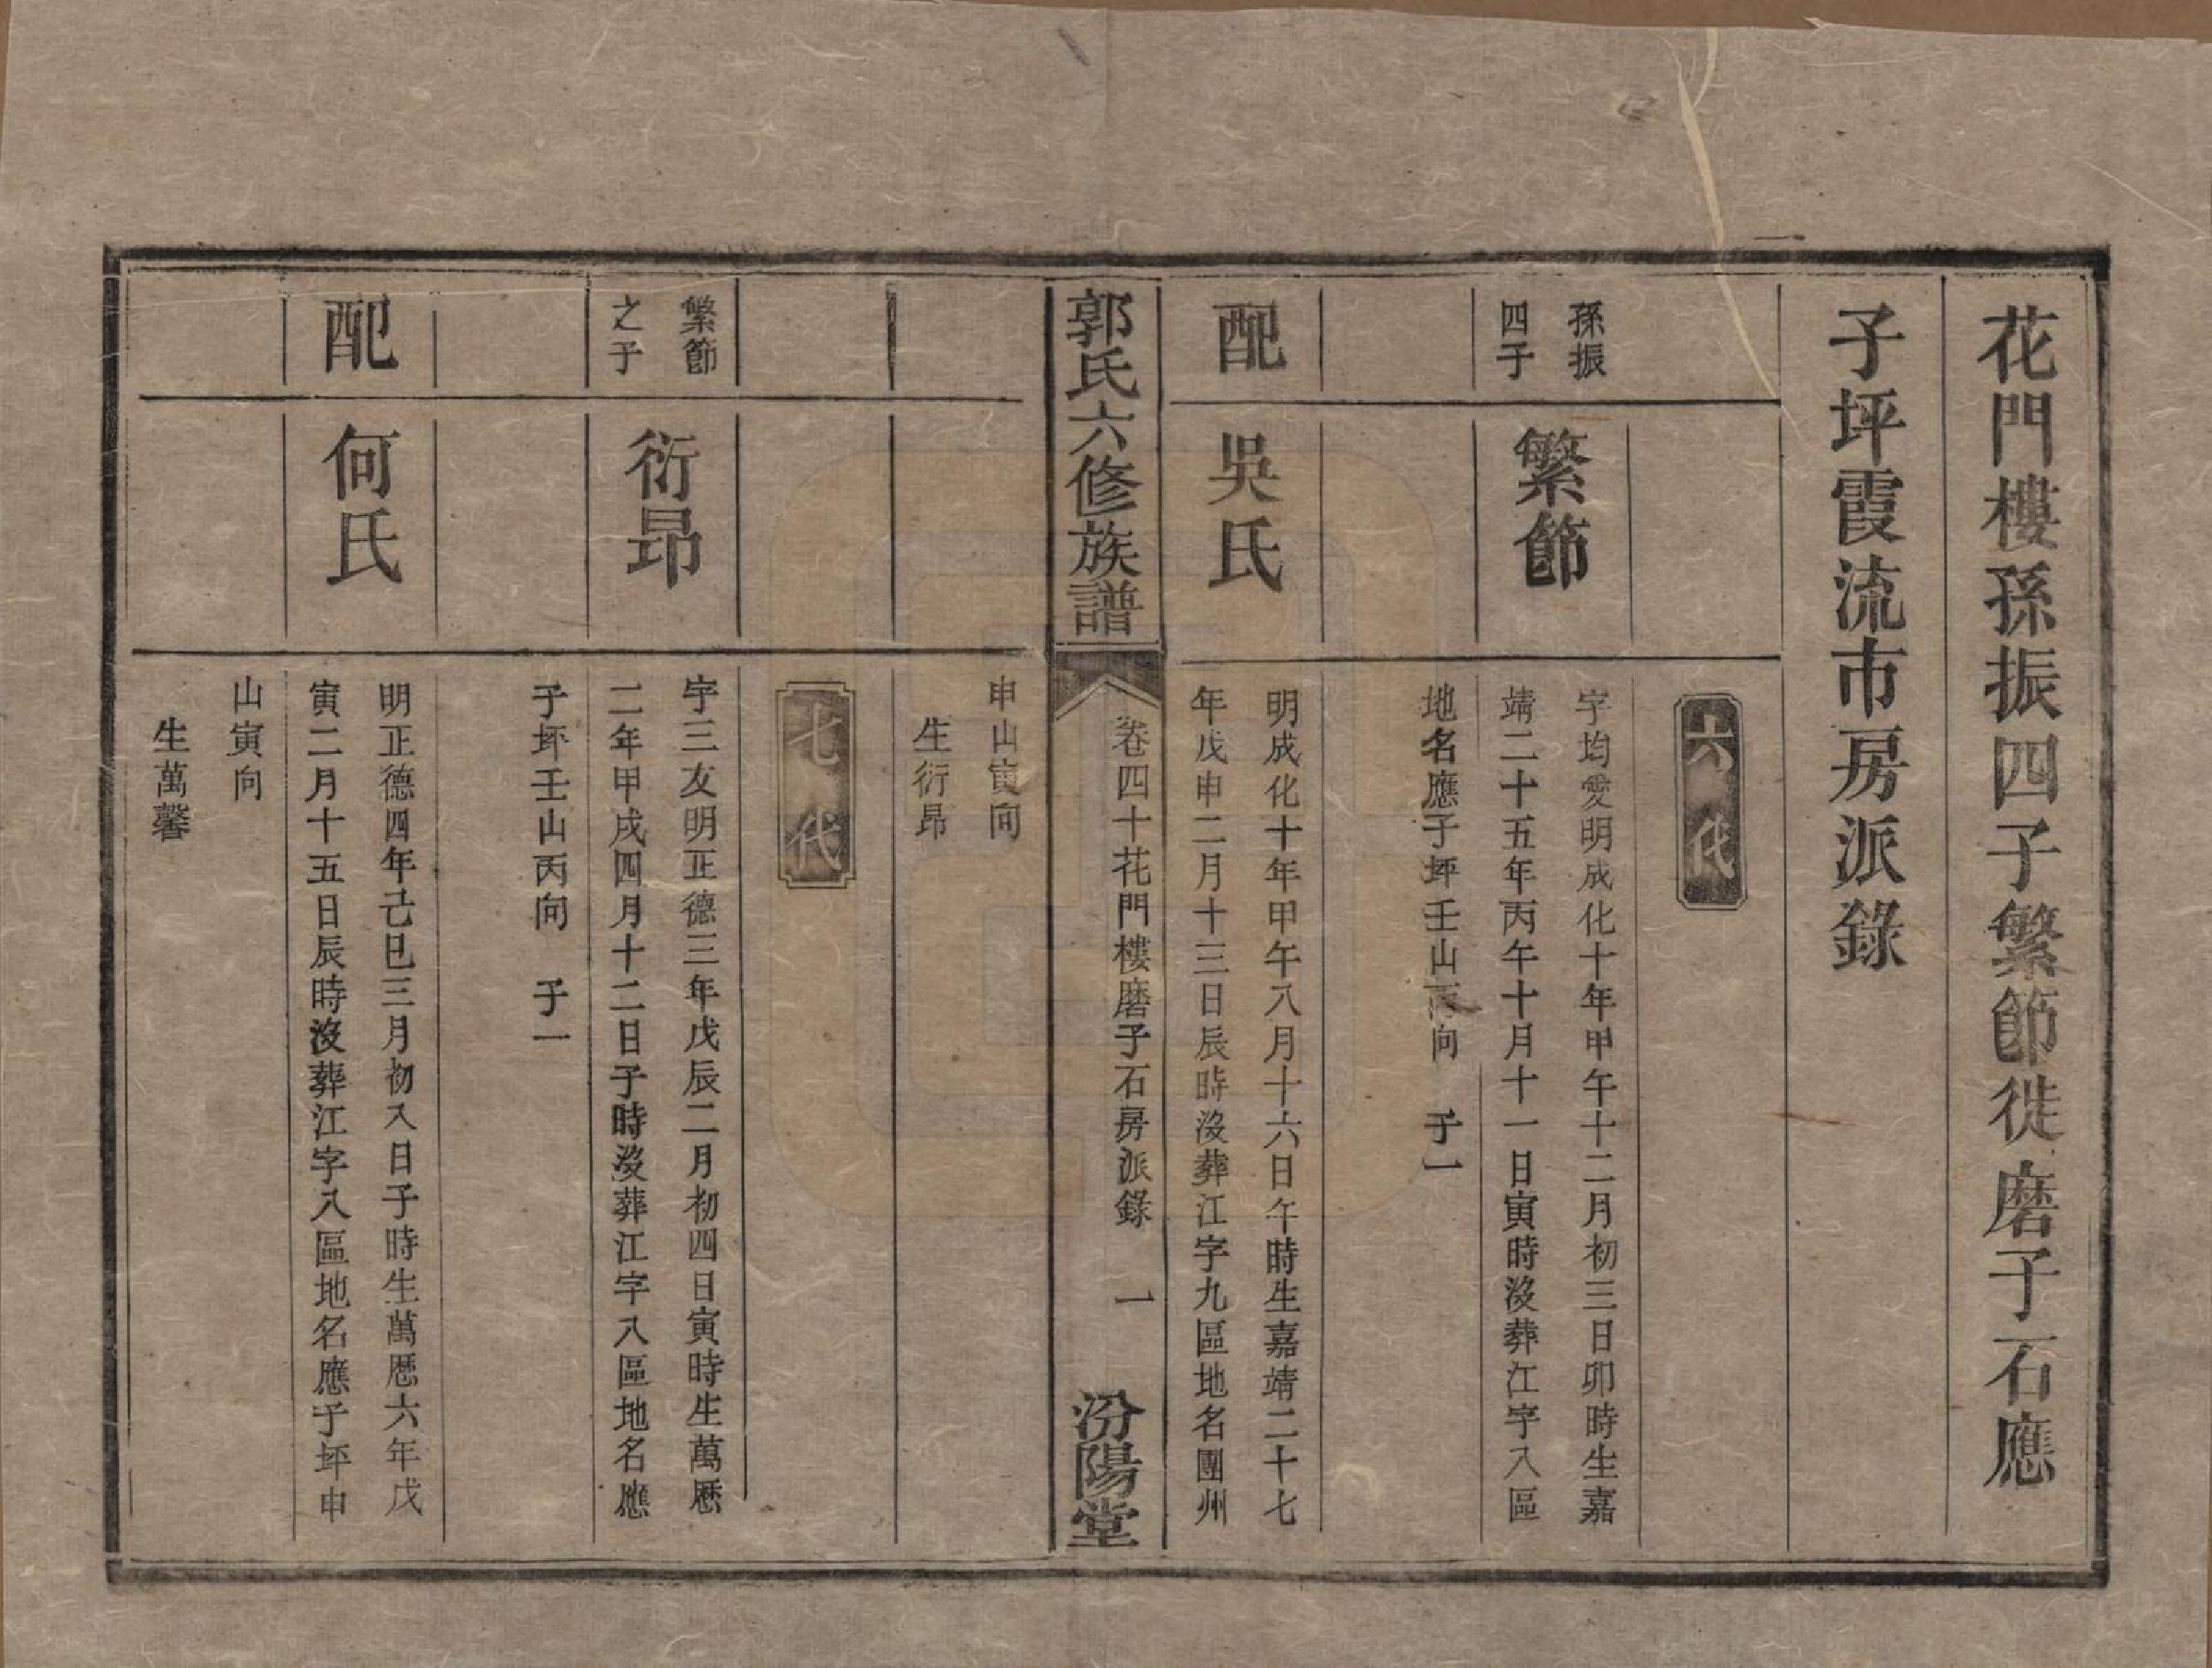 花門樓孫振四子繁節徙磨子石應
子坪霞流市房派錄
六代
孫振
四子
繁節
字均愛明成化十年甲午十二月初三日卯時生嘉
靖二十五年丙午十月十一日寅時沒葬江字八區
地名應子坪壬山丙向 子一
配
吳氏
明成化十年甲午八月十六日午時生嘉靖二十七
年戊申二月十三日辰時沒葬江字九區地名團州
郭氏六修族譜
卷四十花門樓磨子石房派錄 一
汾陽堂
申山寅向
生衍昂
七代
繁節
之子
衍昂
字三友明正德三年戊辰二月初四日寅時生萬厯
二年甲戌四月十二日子時沒葬江字八區地名應
子坪壬山丙向 子一
配
何氏
明正德四年己巳三月初八日子時生萬厯六年戊
寅二月十五日辰時沒葬江字八區地名應子坪申
山寅向
生萬馨